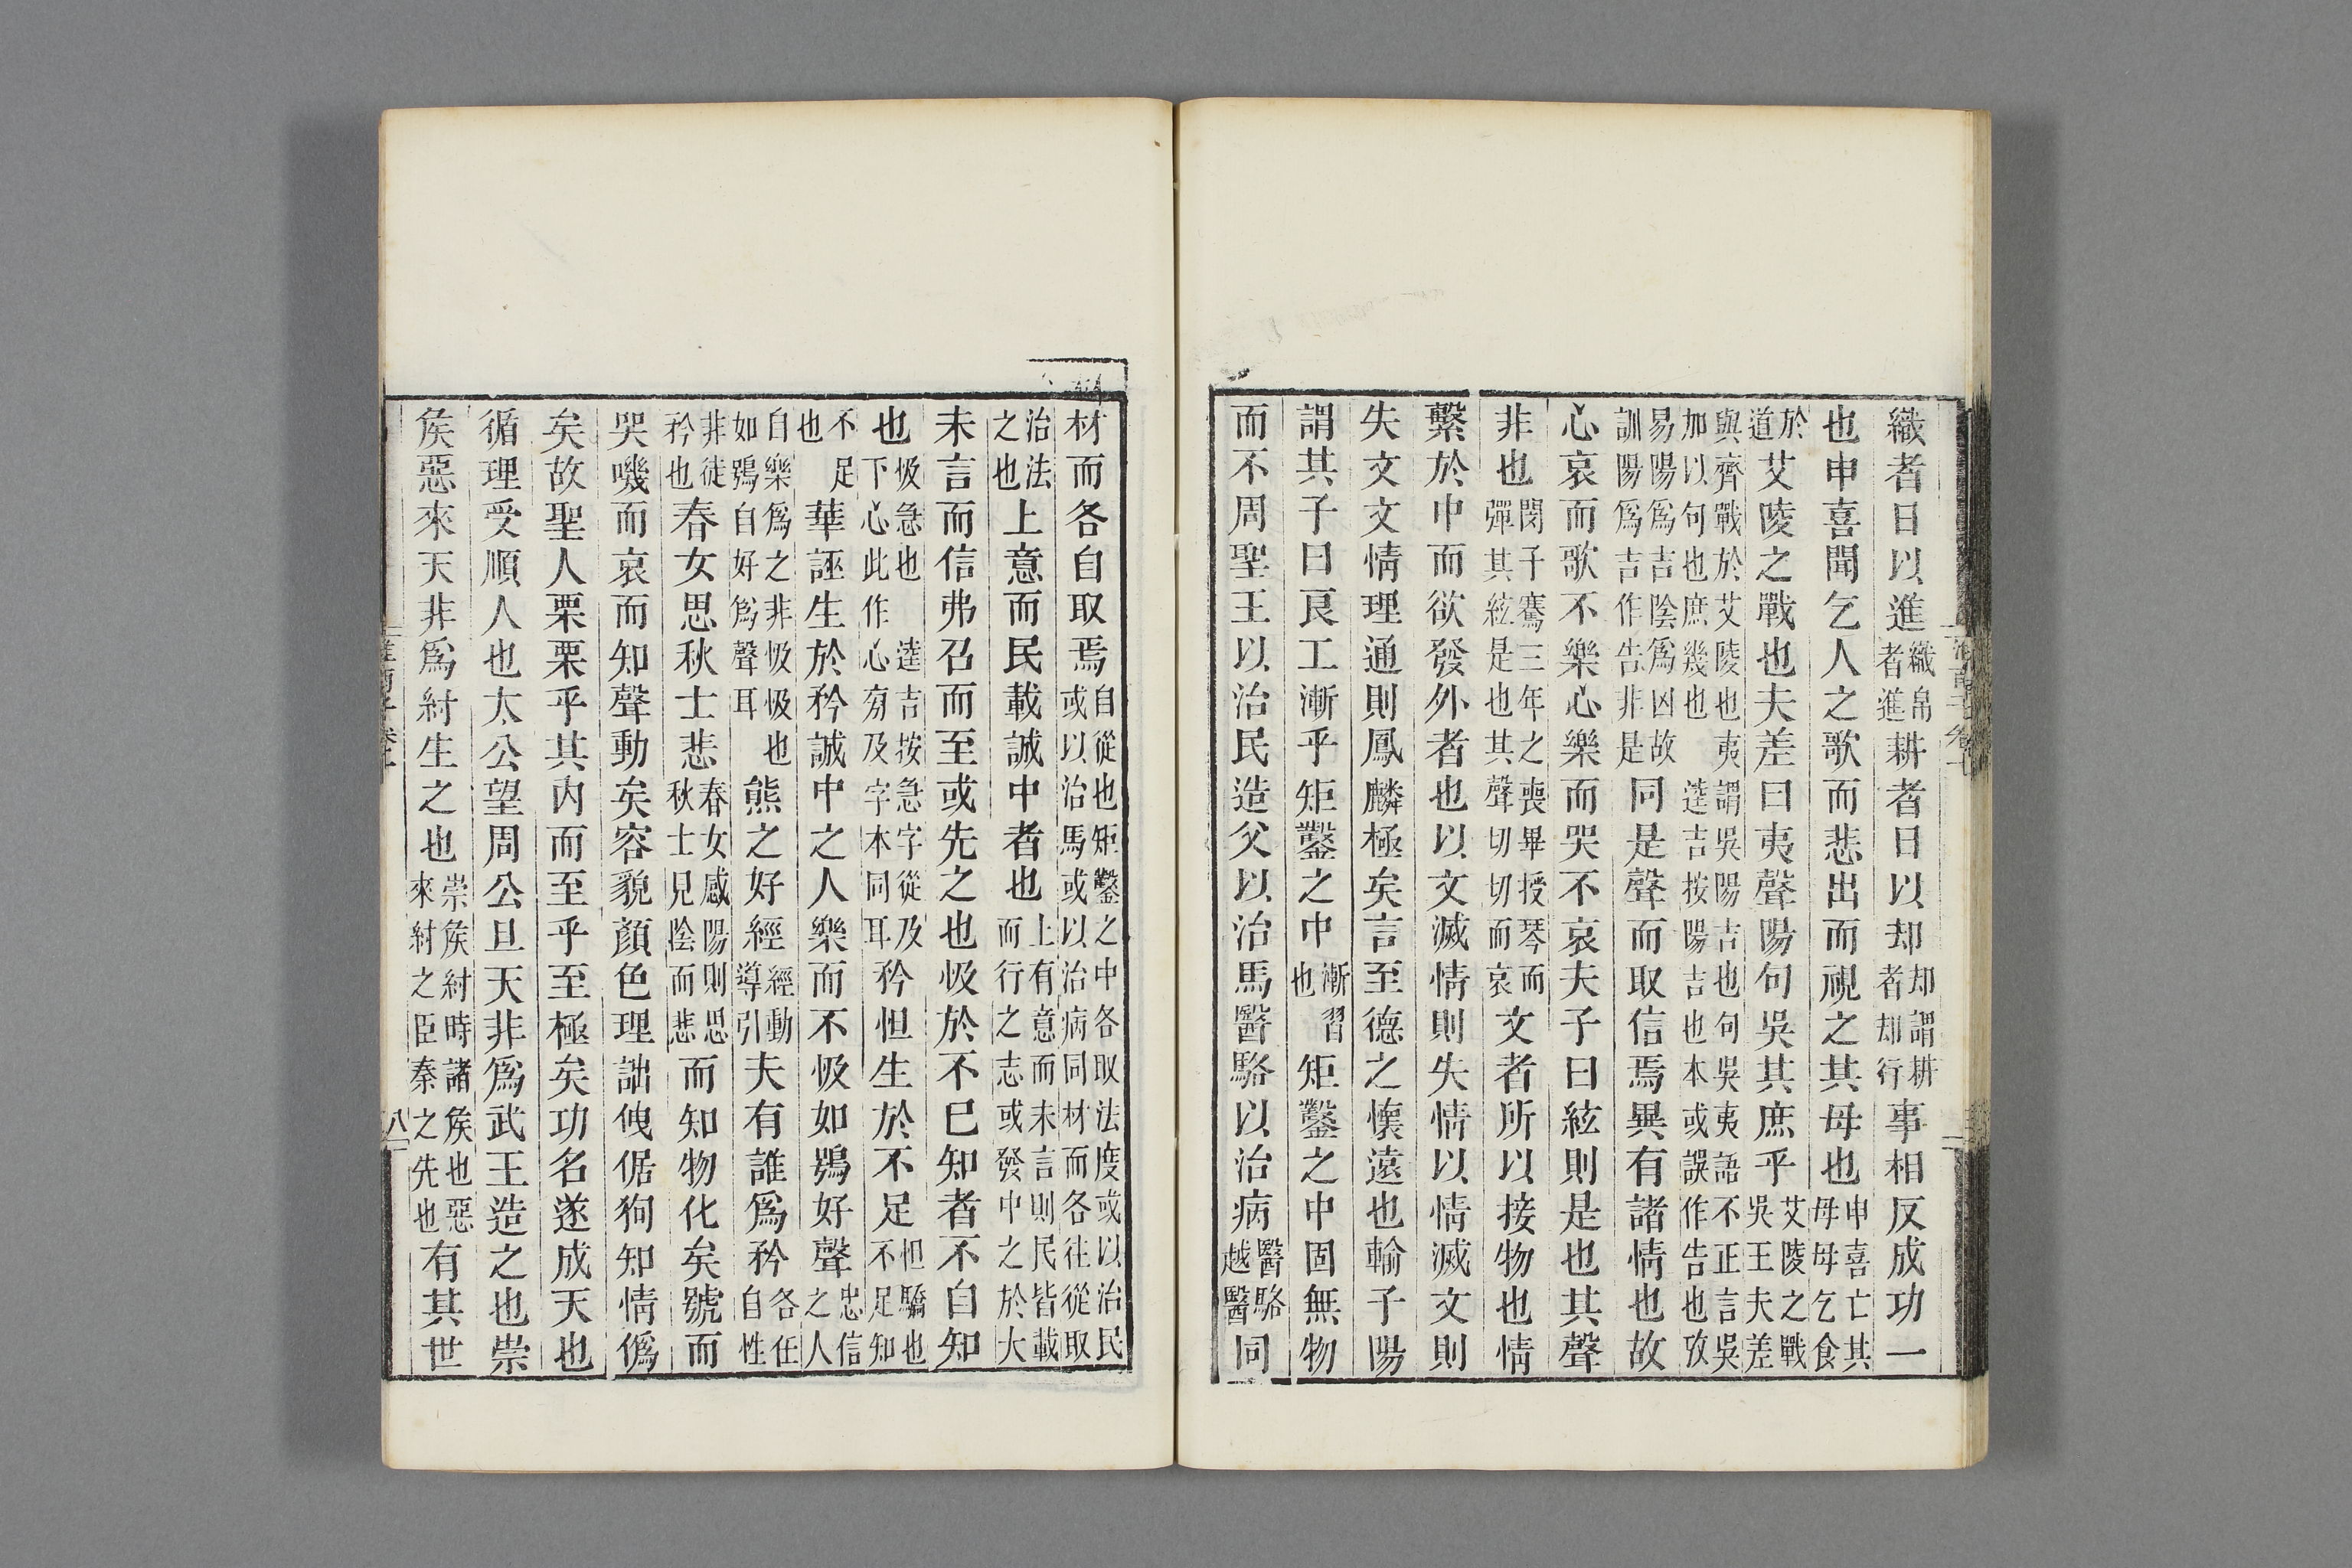 淮南子卷七
織者日以進織帛者進耕者日以却却謂耕者却行事相反成功一
也申喜聞乞人之歌而悲出而視之其母也申喜亡其母母乞食
於道艾陵之戰也夫差曰夷聲陽句吳其庶乎艾陵之戰吳王夫差
與齊戰於艾陵也夷謂吳陽吉也句吳夷語不正言吳加以句也庶幾也 逵吉按陽吉也本或誤作告也攷
易陽爲吉陰爲凶故訓陽爲吉作告非是同是聲而取信焉異有諸情也故
心哀而歌不樂心樂而哭不哀夫子曰絃則是也其聲
非也閔子騫三年之喪畢授琴而彈其絃是也其聲切切而哀文者所以接物也情
繫於中而欲發外者也以文滅情則失情以情滅文則
失文文情理通則鳳麟極矣言至德之懷遠也輸子陽
謂其子曰良工漸乎矩鑿之中漸習也矩鑿之中固無物
而不周聖王以治民造父以治馬醫駱以治病醫駱越醫同
材而各自取焉自從也矩鑿之中各取法度或以治民或以治馬或以治病同材而各往從取
治法之也上意而民載誠中者也上有意而未言則民皆載而行之志或發中之於大
未言而信弗召而至或先之也忣於不已知者不自知
也忣急也 逵吉按急字從及下心此作心旁及字本同耳矜怚生於不足怚驕也不足知
不足也華誣生於矜誠中之人樂而不忣如鴞好聲忠信之人
自樂爲之非忣忣也如鴞自好爲聲耳熊之好經經動導引夫有誰爲矜各任自性
非徒矜也春女思秋士悲春女感陽則思秋士見陰而悲而知物化矣號而
哭嘰而哀而知聲動矣容貌顏色理詘傀倨狥知情僞
矣故聖人栗栗乎其内而至乎至極矣功名遂成天也
循理受順人也太公望周公旦天非爲武王造之也崇
侯惡來天非爲紂生之也崇侯紂時諸侯也惡來紂之臣秦之先也有其世
淮南子卷七
八